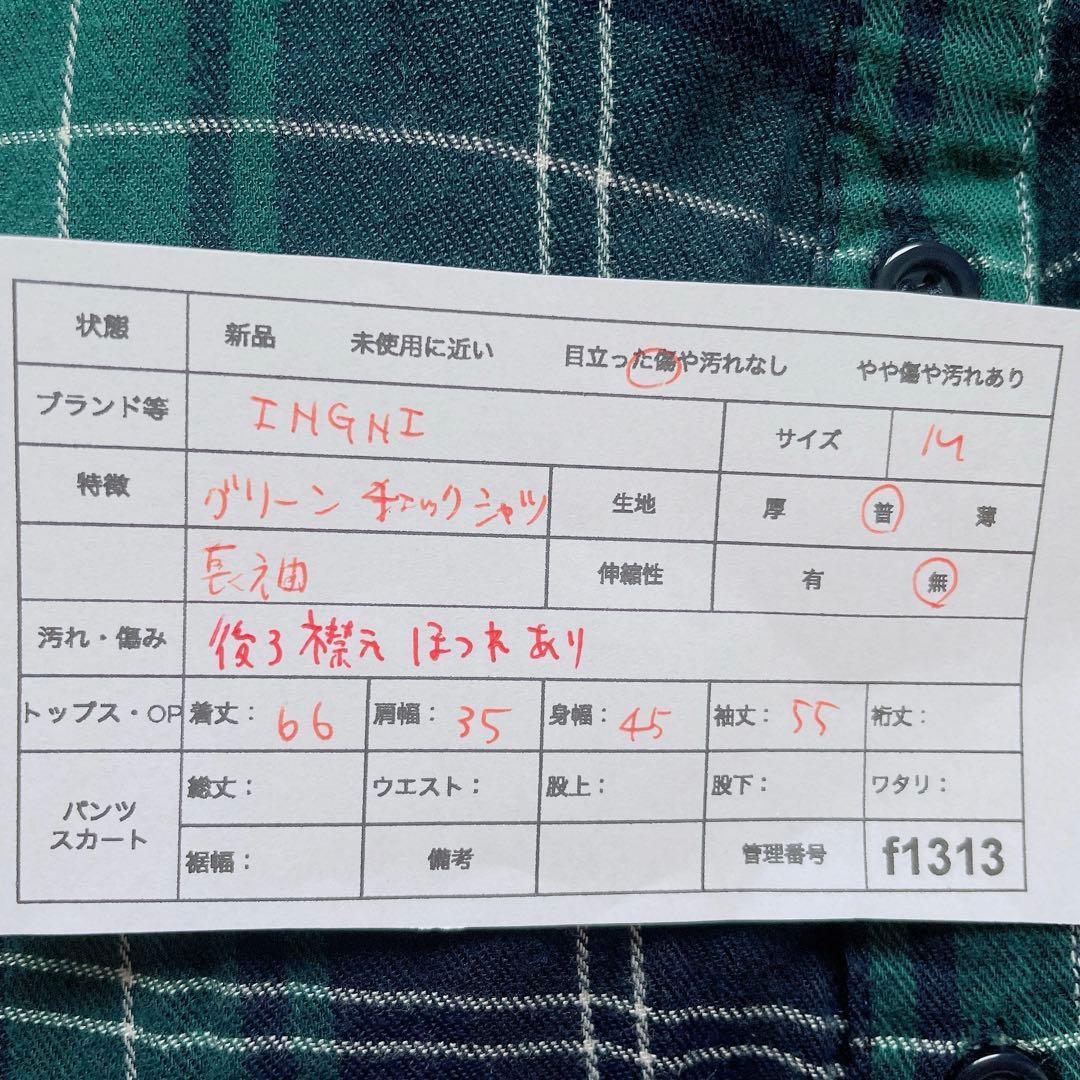 状態 新品 未使用に近い 目立った傷や汚れなし やや傷や汚れあり
ブランド等 INGNI サイズ M
特徴 グリーン チェックシャツ 生地 厚 普 薄
長そ袖 伸縮性 有 無
汚れ・傷み 後ろ襟元 ほつれあり
トップス・OP 着丈: 66 肩幅: 35 身幅: 45 袖丈: 55 裄丈:
パンツ スカート 総丈: ウエスト: 股上: 股下: ワタリ:
裾幅: 備考 管理番号 f1313